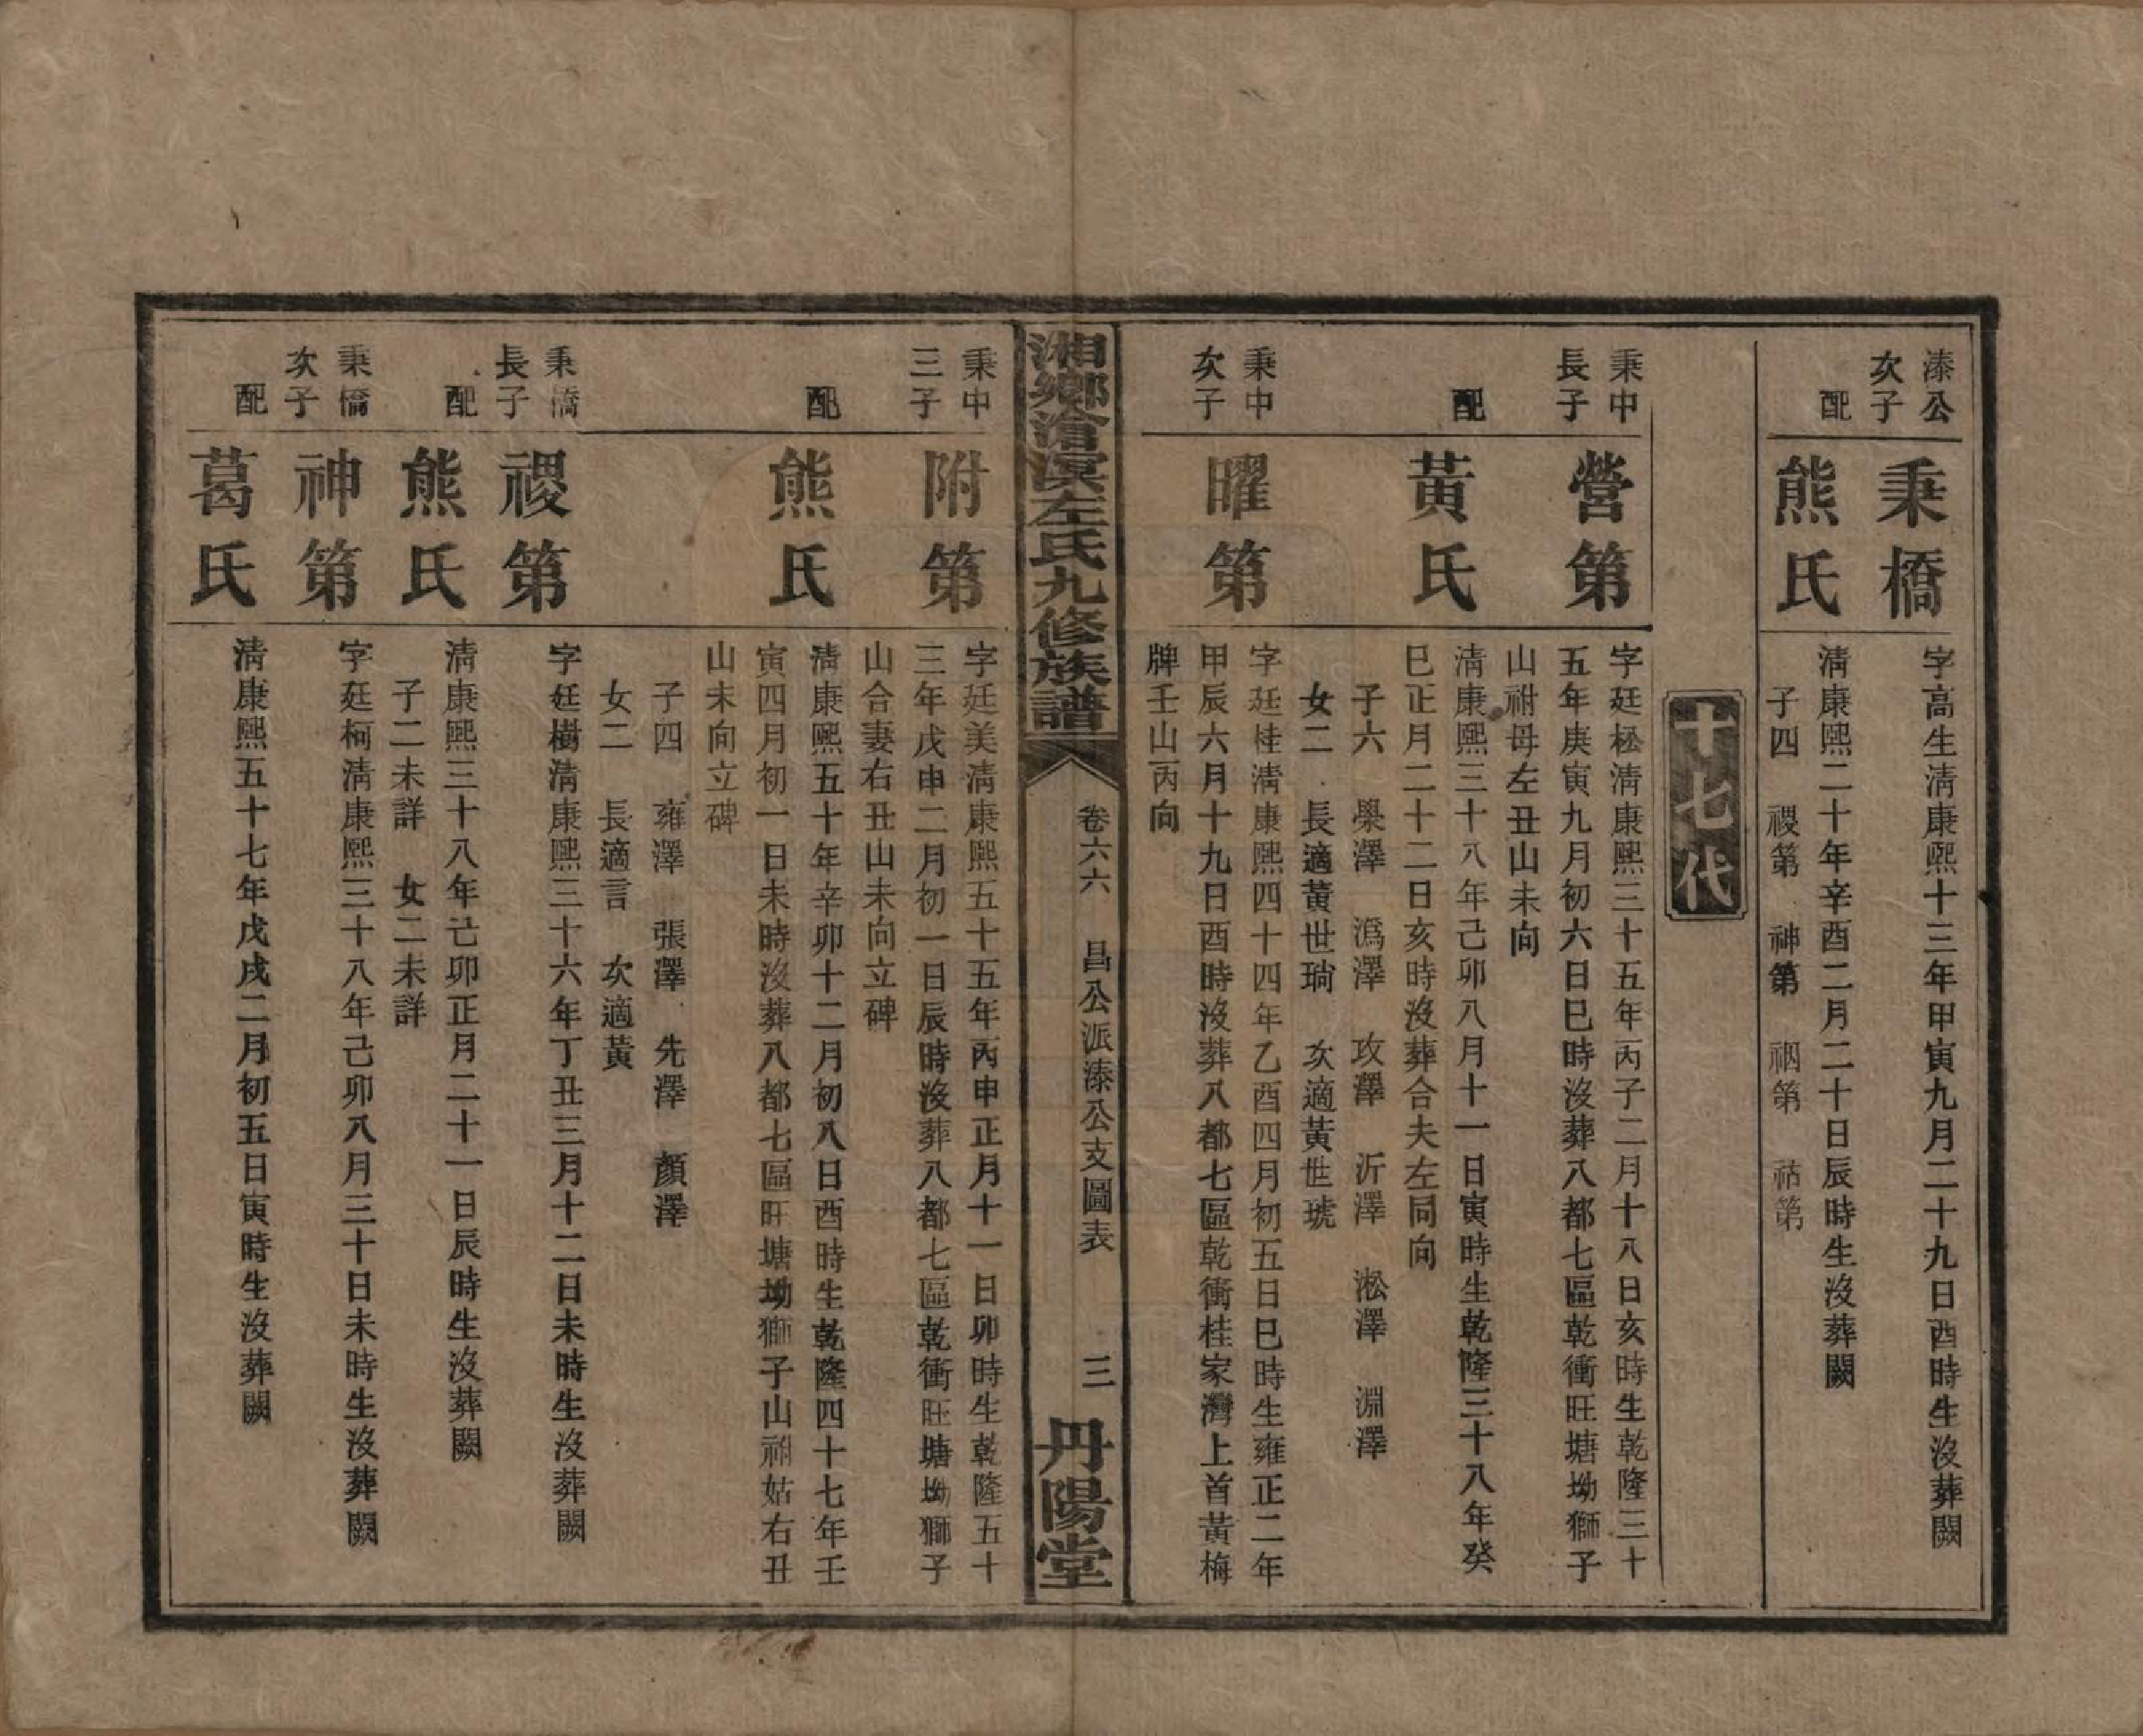 漆公
次子
秉橋
字高生淸康熙十三年甲寅九月二十九日酉時生沒葬闕
配
熊氏
淸康熙二十年辛酉二月二十日辰時生沒葬闕
子四　禝第　神第　祻第　祜第
十七代
秉中
長子
營第
字廷松淸康熙三十五年丙子二月十八日亥時生乾隆三十
五年庚寅九月初六日巳時沒葬八都七區乾衝旺塘坳獅子
山祔母左丑山未向
配
黃氏
淸康熙三十八年己卯八月十一日寅時生乾隆三十八年癸
巳正月二十二日亥時沒葬合夫左同向
子六　㯋澤　潙澤　攻澤　沂澤　淞澤　淵澤
女二　長適黃世瑺　次適黃世琥
秉中
次子
曜第
字廷桂淸康熙四十四年乙酉四月初五日巳時生雍正二年
甲辰六月十九日酉時沒葬八都七區乾衝桂家灣上首黃梅
牌壬山丙向
湘鄉滄溟左氏九修族譜
卷六六　昌公派漆公支圖表　三
丹陽堂
秉中
三子
附第
字廷美淸康熙五十五年丙申正月十一日卯時生乾隆五十
三年戊申二月初一日辰時沒葬八都七區乾衝旺塘坳獅子
山合妻右丑山未向立碑
配
熊氏
淸康熙五十年辛卯十二月初八日酉時生乾隆四十七年壬
寅四月初一日未時沒葬八都七區旺塘坳獅子山祔姑右丑
山未向立碑
子四　雍澤　張澤　先澤　顏澤
女二　長適言　次適黃
秉橋
長子
禝第
字廷樹淸康熙三十六年丁丑三月十二日未時生沒葬闕
配
熊氏
淸康熙三十八年己卯正月二十一日辰時生沒葬闕
子二未詳　女二未詳
秉橋
次子
神第
字廷柯淸康熙三十八年己卯八月三十日未時生沒葬闕
配
葛氏
淸康熙五十七年戊戌二月初五日寅時生沒葬闕